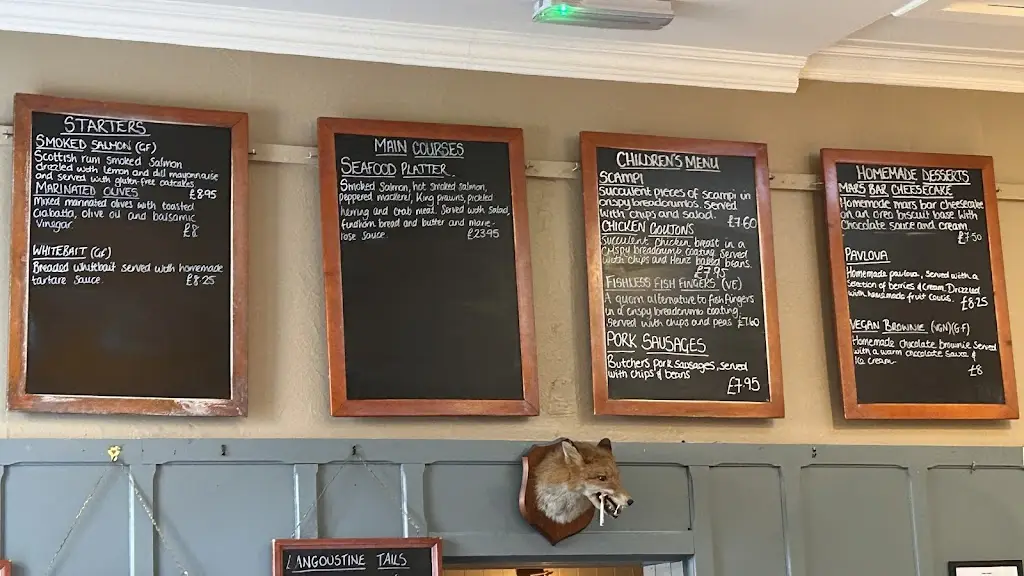 STARTERS
SMOKED SALMON (GF)
Scottish run smoked salmon
drizzled with lemon and dill mayonnaise
and served with gluten-free oatcakes
£8.95
MARINATED OLIVES
Mixed marinated olives with toasted
Ciabatta, olive oil and balsamic
vinegar.
£8
WHITEBAIT (GF)
Breaded whitebait served with homemade
tartare sauce.
£8.25
MAIN COURSES
SEAFOOD PLATTER
Smoked Salmon, hot smoked salmon,
peppered mackerel, King prawns, pickled
herring and crab meat. Served with salad,
findhorn bread and butter and marie-
rose sauce.
£23.95
CHILDREN'S MENU
SCAMPI
succulent pieces of scampi in
crispy breadcrumbs. Served
with chips and salad.
£7.60
CHICKEN GOUJONS
Succulent chicken breast in a
crispy breadcrumb coating. Served
with chips and Heinz baked beans.
£7.95
FISHLESS FISH FINGERS (VE)
A quorn alternative to fish fingers
in a crispy breadcrumb coating.
Served with chips and peas £7.60
PORK SAUSAGES
Butchers pork sausages, served
with chips & beans
£7.95
HOMEMADE DESSERTS
MARS BAR CHEESECAKE
Homemade mars bar cheesecake
on an oreo biscuit base with
chocolate sauce and cream.
£7.50
PAVLOVA
Homemade pavlova, served with a
selection of berries & cream. Drizzled
with handmade fruit coulis.
£8.25
VEGAN BROWNIE (VGN)(GF)
Homemade chocolate brownie served
with a warm chocolate sauce &
ice cream.
£8
LANGOUSTINE TAILS